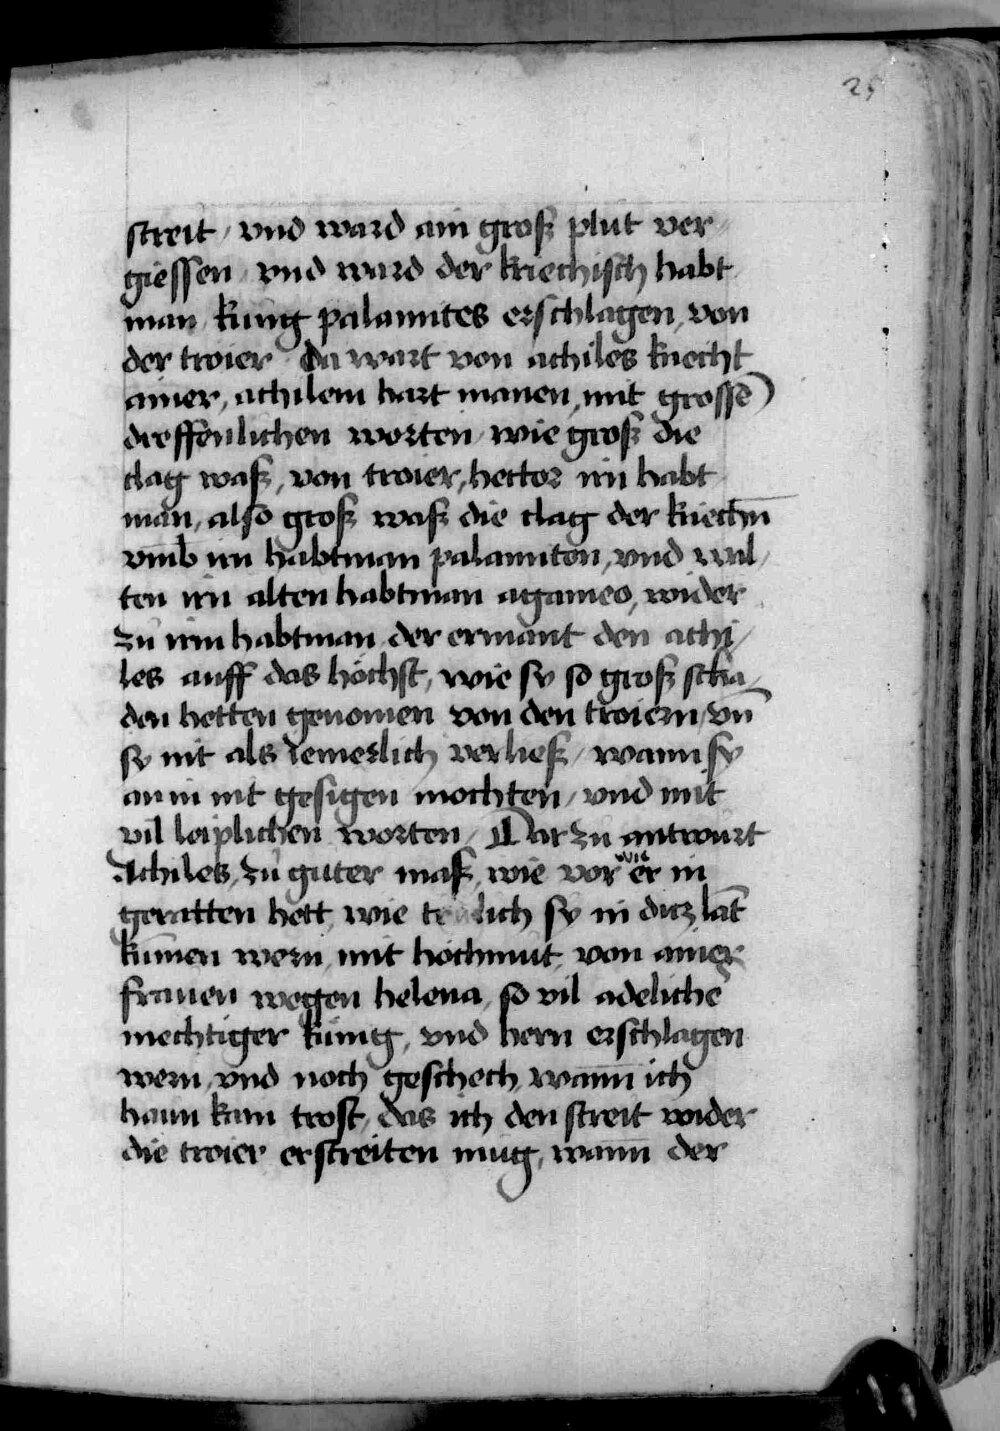 25
streit / vnd ward ain groß plut ver-
giessen / vnd ward der kriechisch habt
man / kunig palanntes erschlagen, von
der troier / Da wart von achiles knecht
ainer, achilem hart manen, mit grossē
dreffenlichen worten / wie groß die
clag waß, von troier, hector irn habt
man, also groß waß die clag der kriechn̄
vmb irn habtman palannton, vnd wal /
ten irn alten habtman agameo, wider
zu irm habtman der ermant den achi /
les auff das höchst, wie sy so groß scha /
den hetten genomen von den troiern / vn̄
sy nit als iemerlich verließ / wann sy
an in nit gesigen mochten / vnd mit
vil leiplichen worten / Dar zu antwurt
Achiles, zu guter maß, wie vor wie er in
geratten hett, wie lich sy in ditz lāt
kumen wern, mit hochmut, von ainer
frauen wegen helena, so vil adelichē
mechtiger kunig, vnd hern erschlagen
wern, vnd noch geschech, wann ich
hann kain trost, das ich den streit wider
die troier erstreiten mug, wann der